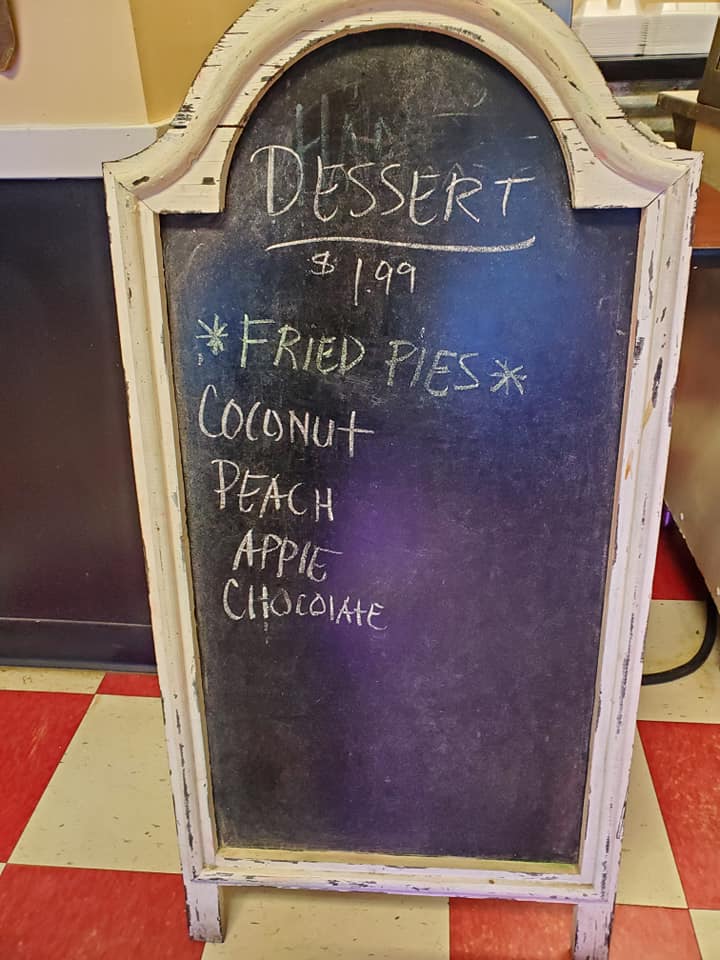 DESSERT
$1.99
*FRIED PIES*
COCONUT
PEACH
APPlE
CHOCOlATE